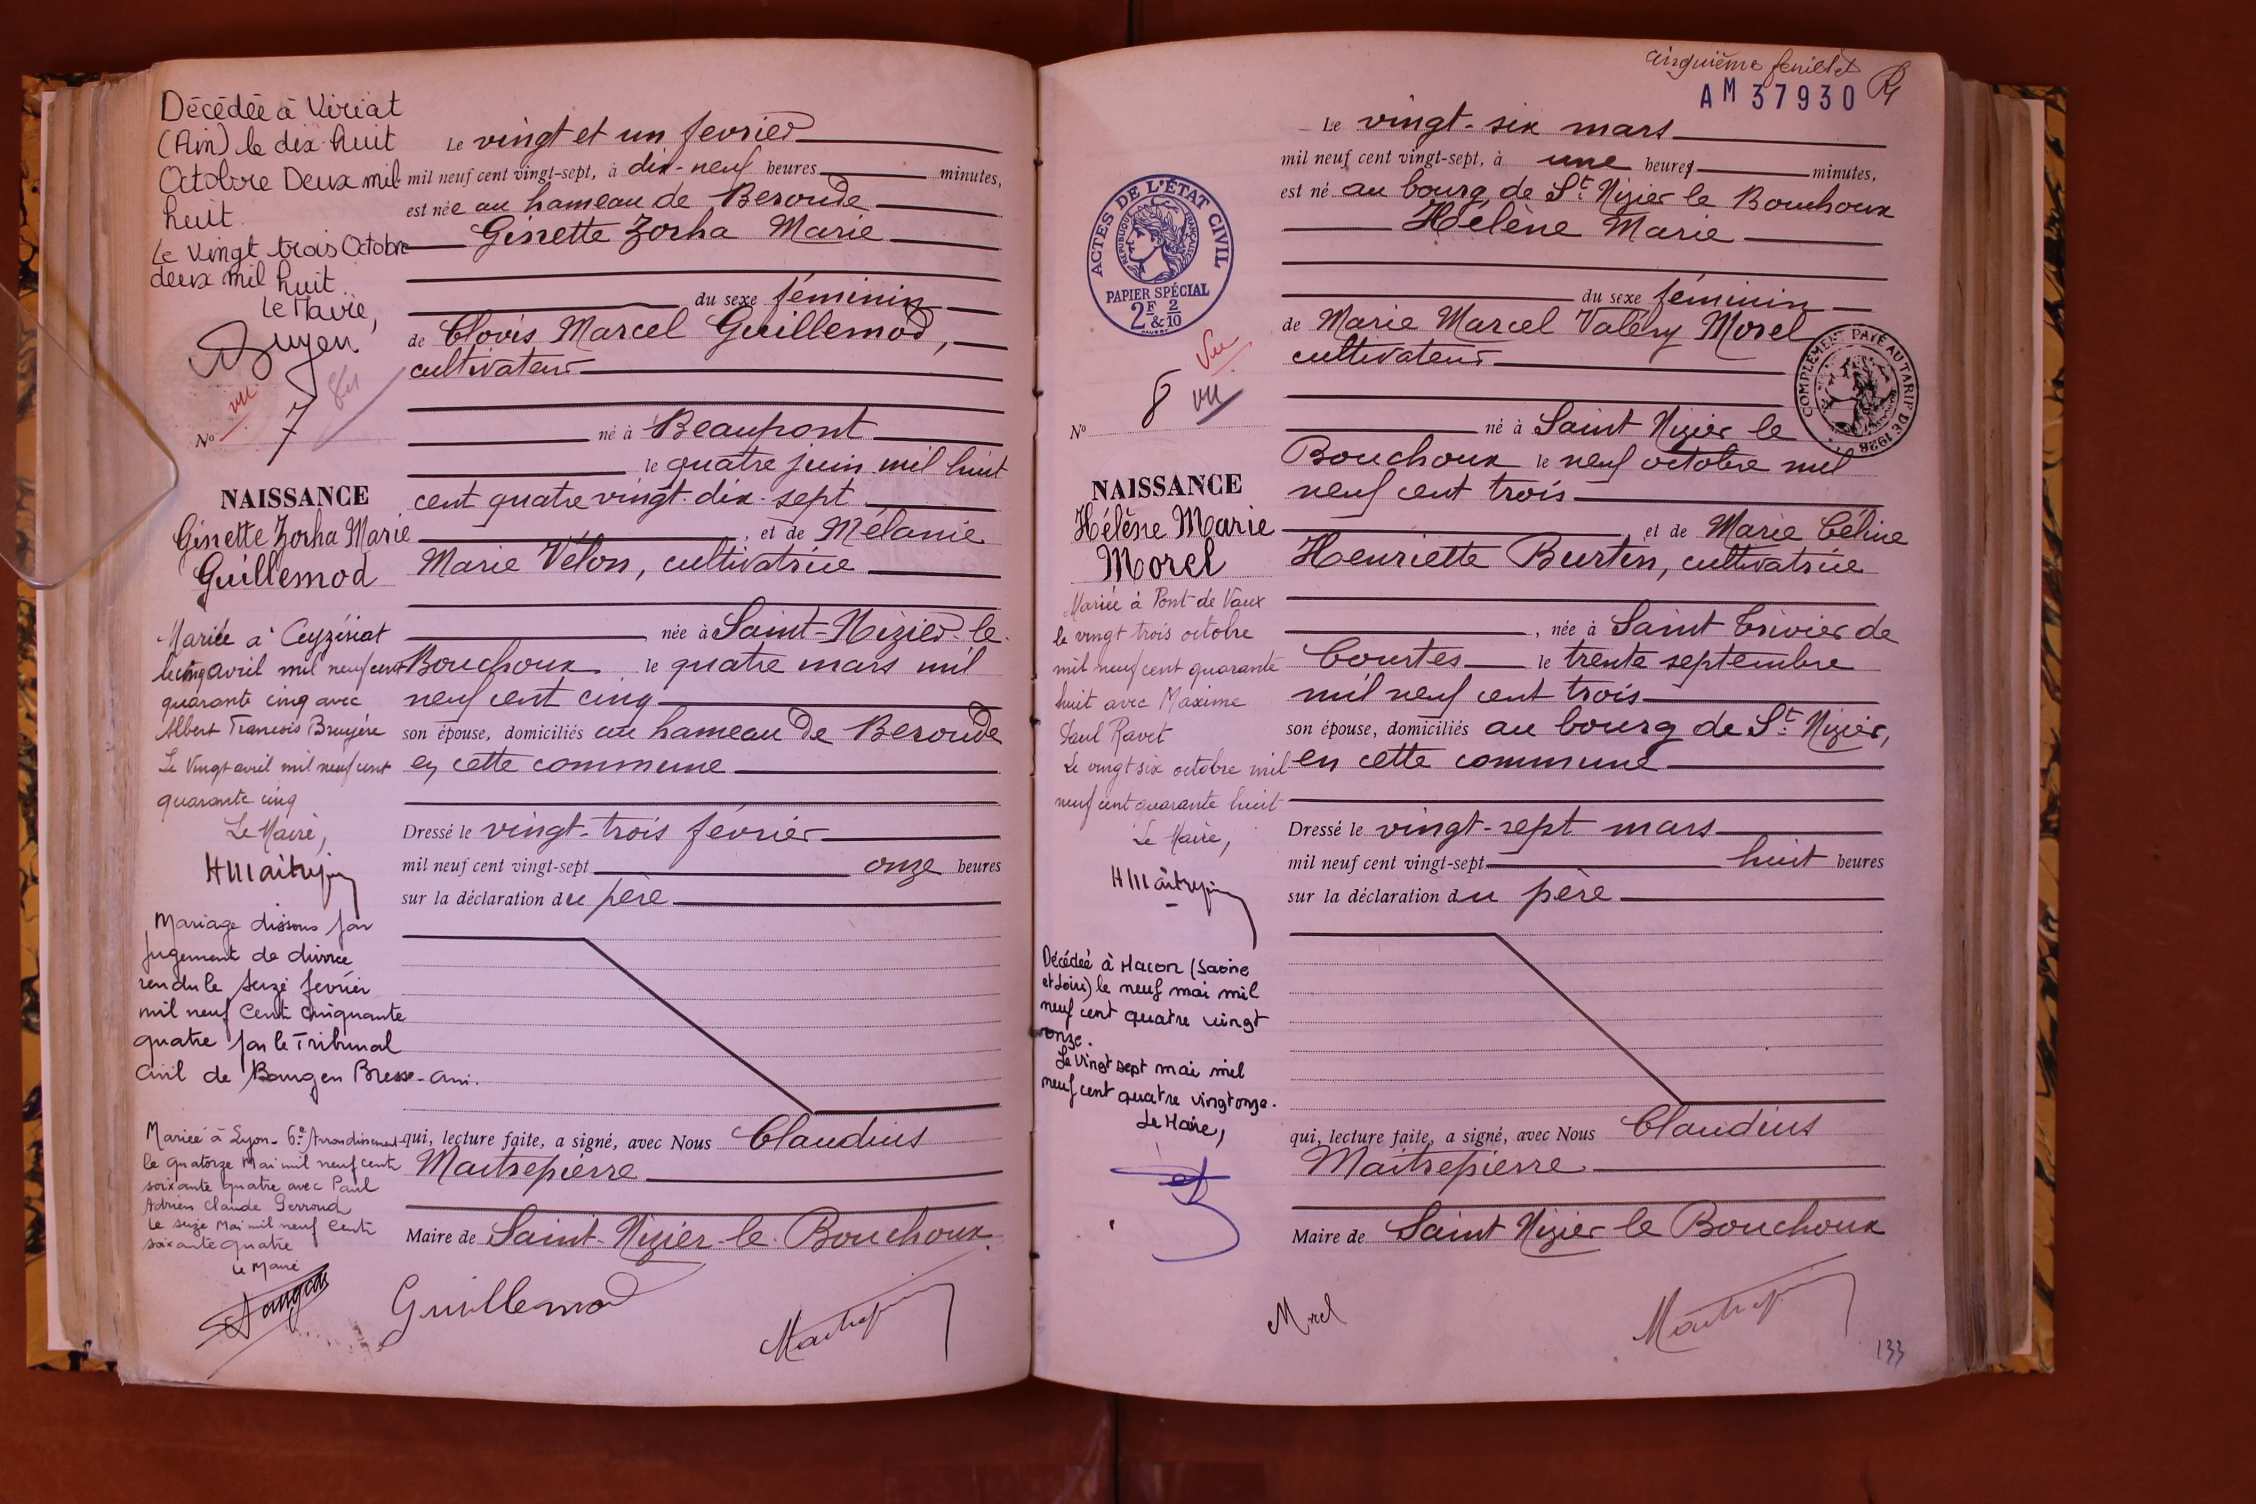 Décédée à Viriat
(Ain) le dix huit
Octobre Deux mil
huit.
Le vingt trois Octobre
deux mil huit.
Le Maire,
vu
N° 7
NAISSANCE
Ginette Zorha Marie
Guillemod
Mariée à Ceyzériat
le cinq avril mil neuf cent
quarante cinq avec
Albert François Bruyère
Le Vingt avril mil neuf cent
quarante cinq
Le Maire,
HMaitrepierre
Mariage dissous par
jugement de divorce
rendu le seize février
mil neuf Cent cinquante
quatre par le Tribunal
Civil de Bourg en Bresse - Ain.
Mariée à Lyon - 6e Arrondissement
le quatorze Mai mil neuf cent
soixante quatre avec Paul
Adrien Claude Perroud
Le seize Mai mil neuf Cent
soixante quatre
Le Maire
Le vingt et un fevrier
mil neuf cent vingt-sept, à dix-neuf heures minutes,
est née au hameau de Beroude
Ginette Zorha Marie
du sexe féminin
de Clovis Marcel Guillemod,
cultivateur
né à Beaupont
le quatre juin mil huit
cent quatre vingt-dix-sept
, et de Mélanie
Marie Vélon, cultivatrice
née à Saint-Nizier-le-
Bouchoux le quatre mars mil
neuf cent cinq
son épouse, domiciliés au hameau de Beroude
en cette commune
Dressé le vingt-trois février
mil neuf cent vingt-sept onze heures
sur la déclaration du père
qui, lecture faite, a signé, avec Nous Claudius
Maitrepierre
Maire de Saint-Nizier-le-Bouchoux
Guillemod
Maitrepierre
cinquième feuillet
AM 37930
ACTES DE L'ÉTAT CIVIL
RÉPUBLIQUE FRANÇAISE
PAPIER SPÉCIAL
2F & 2/10
Vu
N° 8 vu
NAISSANCE
Hélène Marie
Morel
Mariée à Pont de Vaux
le vingt trois octobre
mil neuf cent quarante
huit avec Maxime
Paul Ravet
Le vingt six octobre mil
neuf cent quarante huit
Le Maire,
HMaitrepierre
Décédée à Macon (Saône
et Loire) le neuf mai mil
neuf cent quatre vingt
onze.
Le Vingt sept mai mil
neuf cent quatre vingt onze.
Le Maire,
Le vingt-six mars
mil neuf cent vingt-sept, à une heures minutes,
est né au bourg de St Nizier le Bouchoux
Hélène Marie
du sexe féminin
de Marie Marcel Valéry Morel
cultivateur
COMPLÉMENT PAYÉ AU TARIF DE 1926
né à Saint Nizier le
Bouchoux le neuf octobre mil
neuf cent trois
et de Marie Céline
Henriette Burtin, cultivatrice
, née à Saint Trivier de
Courtes le trente septembre
mil neuf cent trois
son épouse, domiciliés au bourg de St Nizier,
en cette commune
Dressé le vingt-sept mars
mil neuf cent vingt-sept huit heures
sur la déclaration du père
qui, lecture faite, a signé, avec Nous Claudius
Maitrepierre
Maire de Saint Nizier le Bouchoux
Morel
Maitrepierre
133